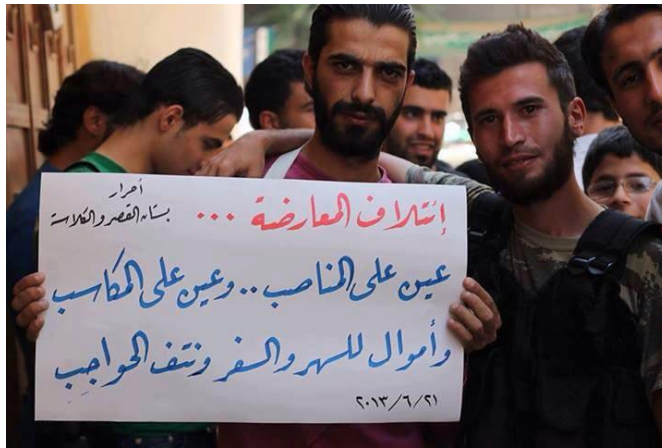 أحرار
بستان القصر والكلاسة
إئتلاف المعارضة ...
عين على المناصب .. وعين على المكاسب
وأموال للسهر والسفر ونتف الحواجب
٢٠١٣/٦/٢١